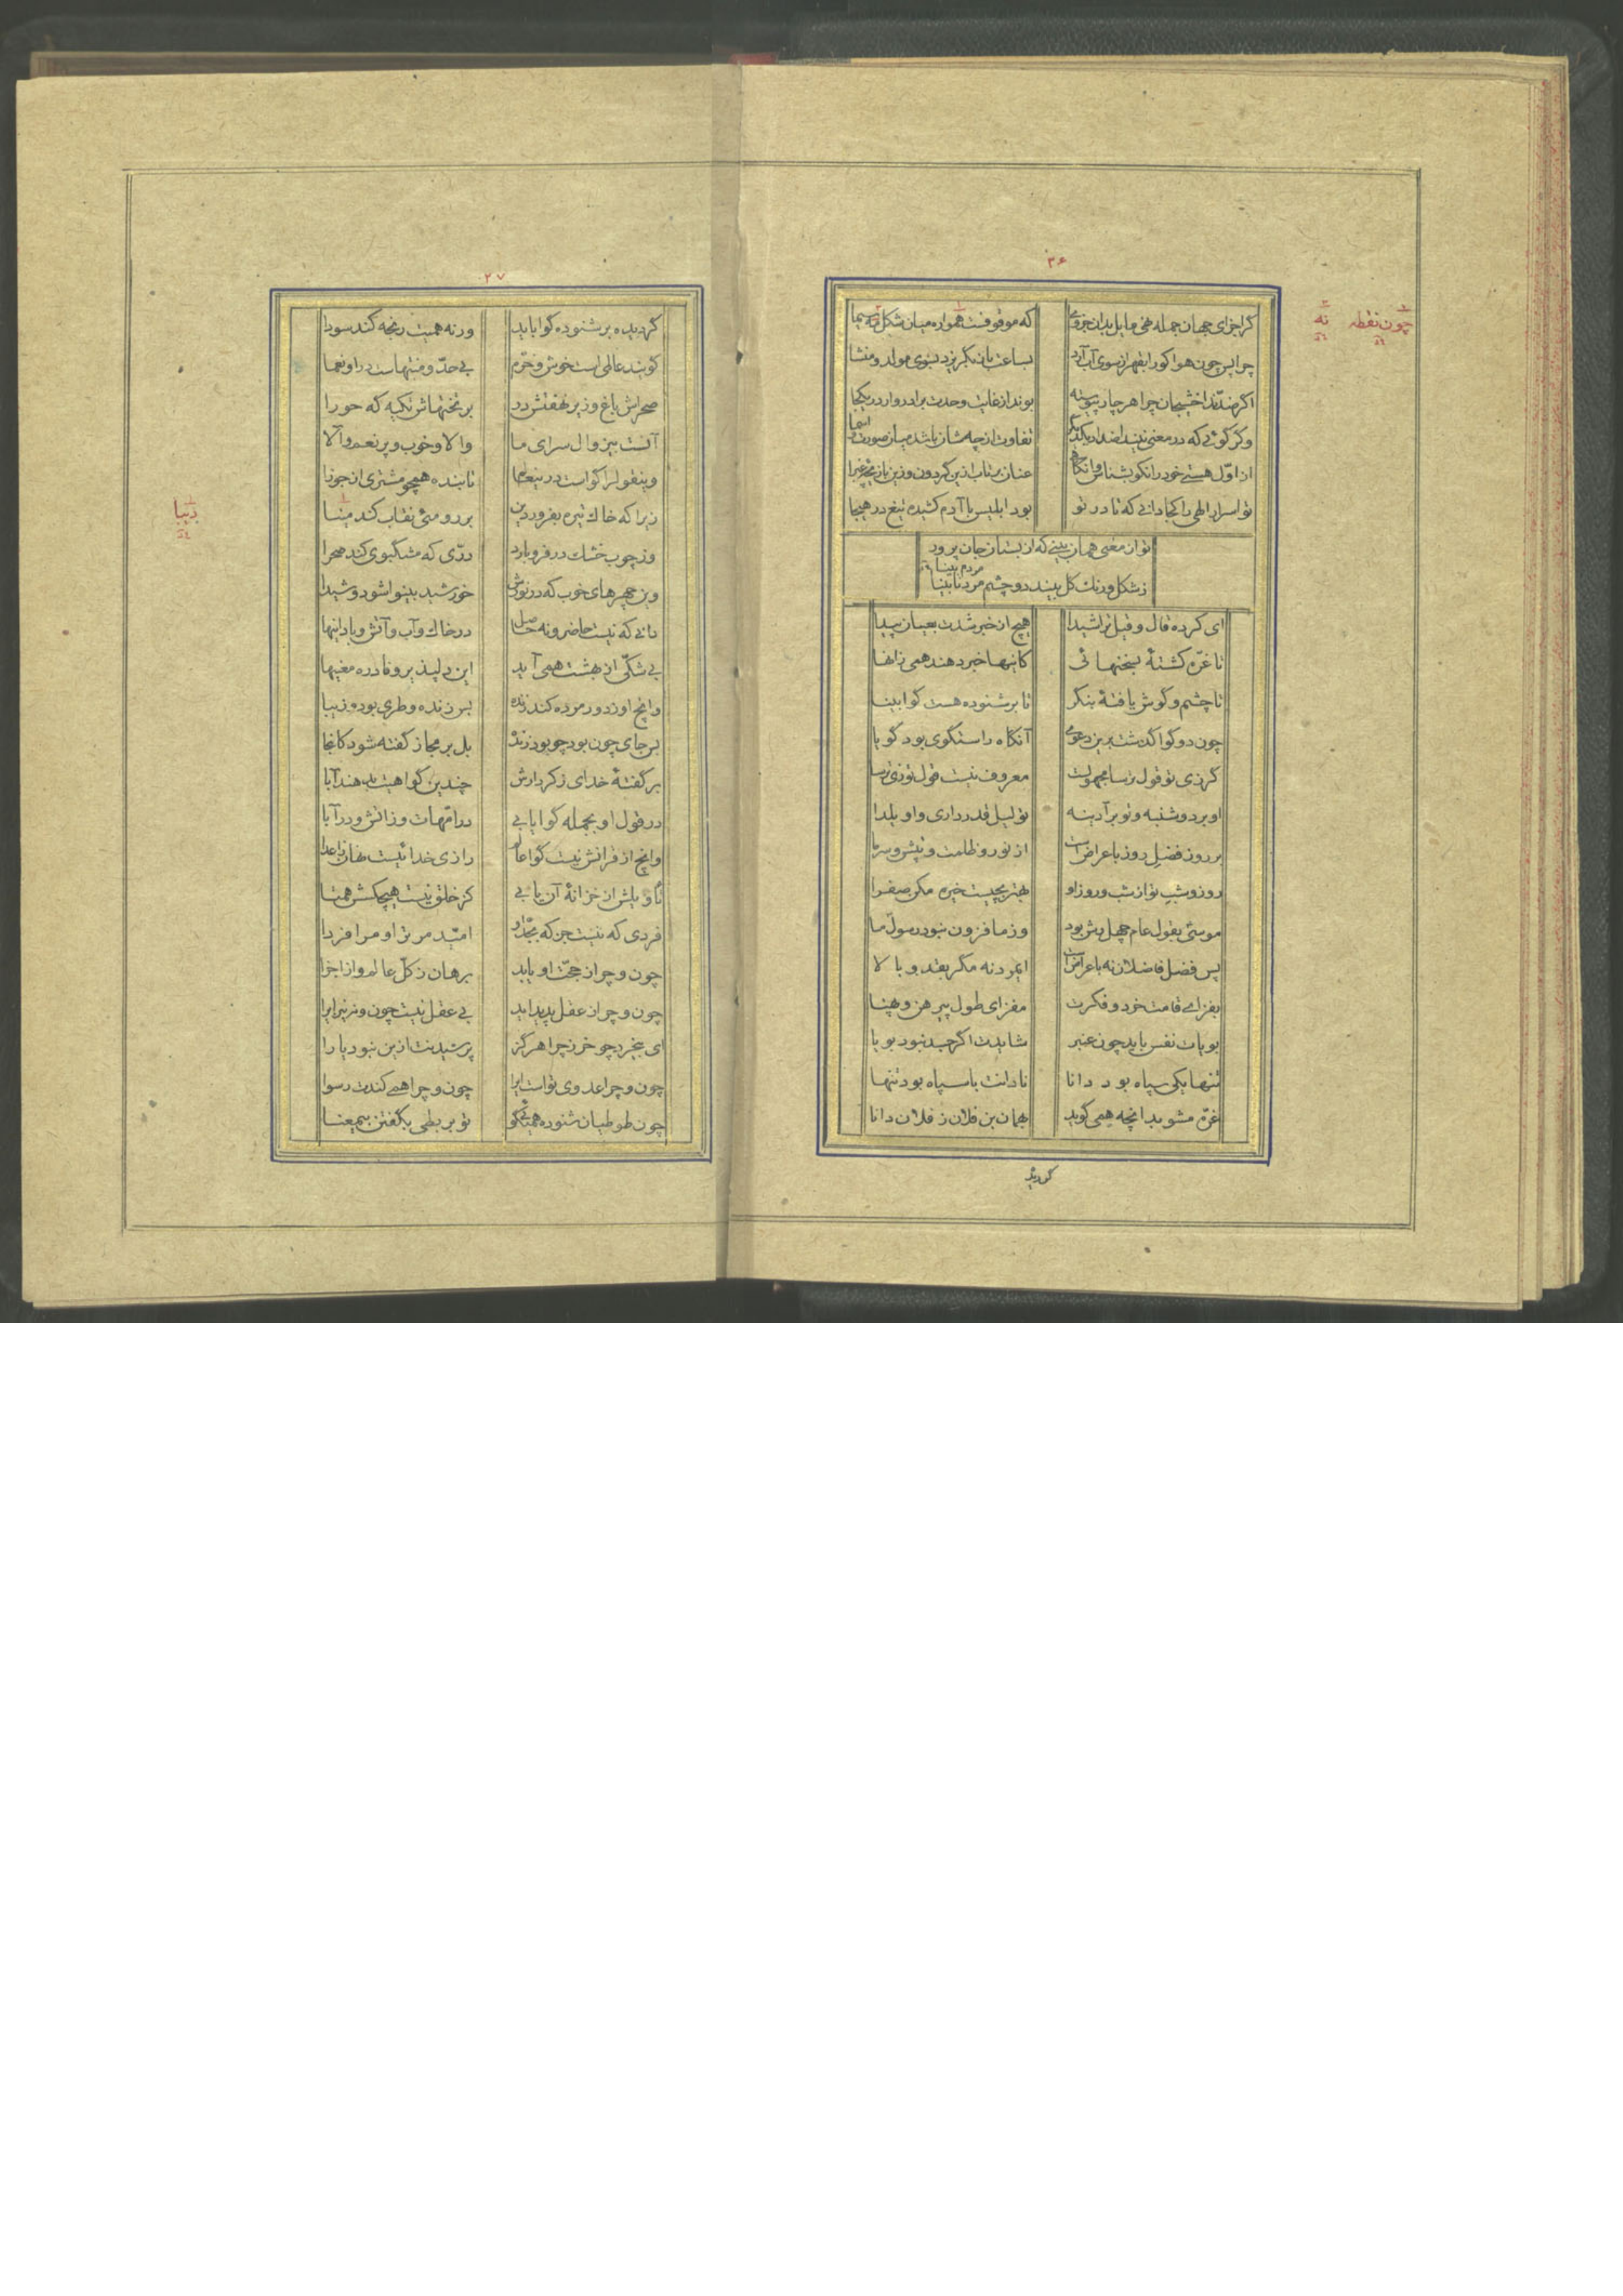 ۲۶
گر اجزای جهان جمله نهی مایل بدان جزوی که موقوفست همواره میان شکل نه سیما
چرا پس چون هوا کو را بقهر از سوی آب آرد بساعت باز بگریزد بسوی مولد و منشا
اگر ضدّند اخشیجان چرا هر چار پیوسته بوند از غایت وحدت برادروار در یکجا
وگر گوئی که در معنی نیند اضداد یکدیگر تفاوت از چه شان باشد میان صورت و اسما
از اول هستی خود را نکو بشناس و آنگاهی عنان برتاب ازین گردون وزین بازیچه غبرا
تو اسرار الهی را کجا دانی که تا در تو بود ابلیس با آدم کشیده تیغ در هیجا
تو از معنی همان بینی که از بستان جان پرور
ز شکل و رنگ گل بیند دو چشم مرد نابینا
مردم بینا
ای کرده قال و قیل ترا شیدا هیچ از خبر شدت بعیان پیدا
تا غرّه گشتهٔ بسخنهائی کاینها خبر دهند همی زانها
تا چشم و گوش یافتهٔ بنگر تا بر شنوده هست گوا بینا
چون دو گوا گذشت برین دعوی آنگاه راستگوی بود گویا
گر زی تو قول ترسا مجهولست معروف نیست قول تو زی ترسا
او بر دوشنبه و تو بر آدینه تو لیل قدر داری و او یلدا
بر روز فضل روز باعراض است از نور و ظلمت و تپش و سرما
روز و شب تو از شب و روز او بهتر بچیست خیره مکن صفرا
موسیّ بقول عام چهل رش بود وز ما فزون نبود رسول ما
پس فضل فاضلان نه باعراض است ایمرد نه مگر بقد و بالا
بفزای قامت خرد و فکرت مفزای طول پیرهن و پهنا
بویات نفس باید چون عنبر شایدت اگر جسد نبود بویا
تنها یکی سپاه بود دانا نادانت با سپاه بود تنها
غرّه مشو بدانچه همی گوید بهمان بن فلان ز فلان دانا
چون نقطه
نه
۲۷
گر دیده بر شنوده گوا باید ورنه همیت رنجه کند سودا
گویند عالمی است خوش و خرّم بی حدّ و منتهاست در او نعما
صحراش باغ و زیر نهفتش در بر تختهاش تکیه گه حورا
آنست بیزوال سرای ما والا و خوب و پر نعم و آلا
وینقول را گواست درینعالم تابنده همچو مشتری از جوزا
زیرا که خاک تیره بفروردین بر رو می نقاب کند مینا
وز چوب خشک در فرو بارد درّی که مشگبوی کند صحرا
وین چهرهای خوب که در نورش خورشید بینوا شود و شیدا
دانی که نیست حاضر و نه حاصل در خاک و آب و آتش و باد اینها
بی شکّی از بهشت همی آید این دلپذیر و نادره معنیها
وانچ او ز دور مرده کند زنده پس زنده و طری بود و زیبا
پس جای چون بود چو بود زنده بل بر مجاز گفته شود کانجا
بر گفتهٔ خدای ز کردارش چندین گواهیت بدهند آبا
در قول او بجمله گوا یابی در امّهات وز آتش و در آبا
وانچ از قرانش نیست گوا عالم رازی خدائیست نهان ز اعدا
تاویلش از خزانهٔ آن یابی کز خلق نیست هیچکسش همتا
فردی که نیست جز که بجدّ او امّید مر ترا و مرا فردا
چون و چرا ز حجّت او باید برهان ز کل عالم و از اجزا
چون و چرا ز عقل پدید آید بی عقل نیست چون و نه نیز ایرا
ای بیخرد چو خر ز چرا هرگز پرسیدنت ازین نبود یارا
چون و چرا عدوی تو است ایرا چون و چرا همی کندت رسوا
چون طوطیان شنوده همی گوئی تو بربطی بگفتن بیمعنا
دیبا